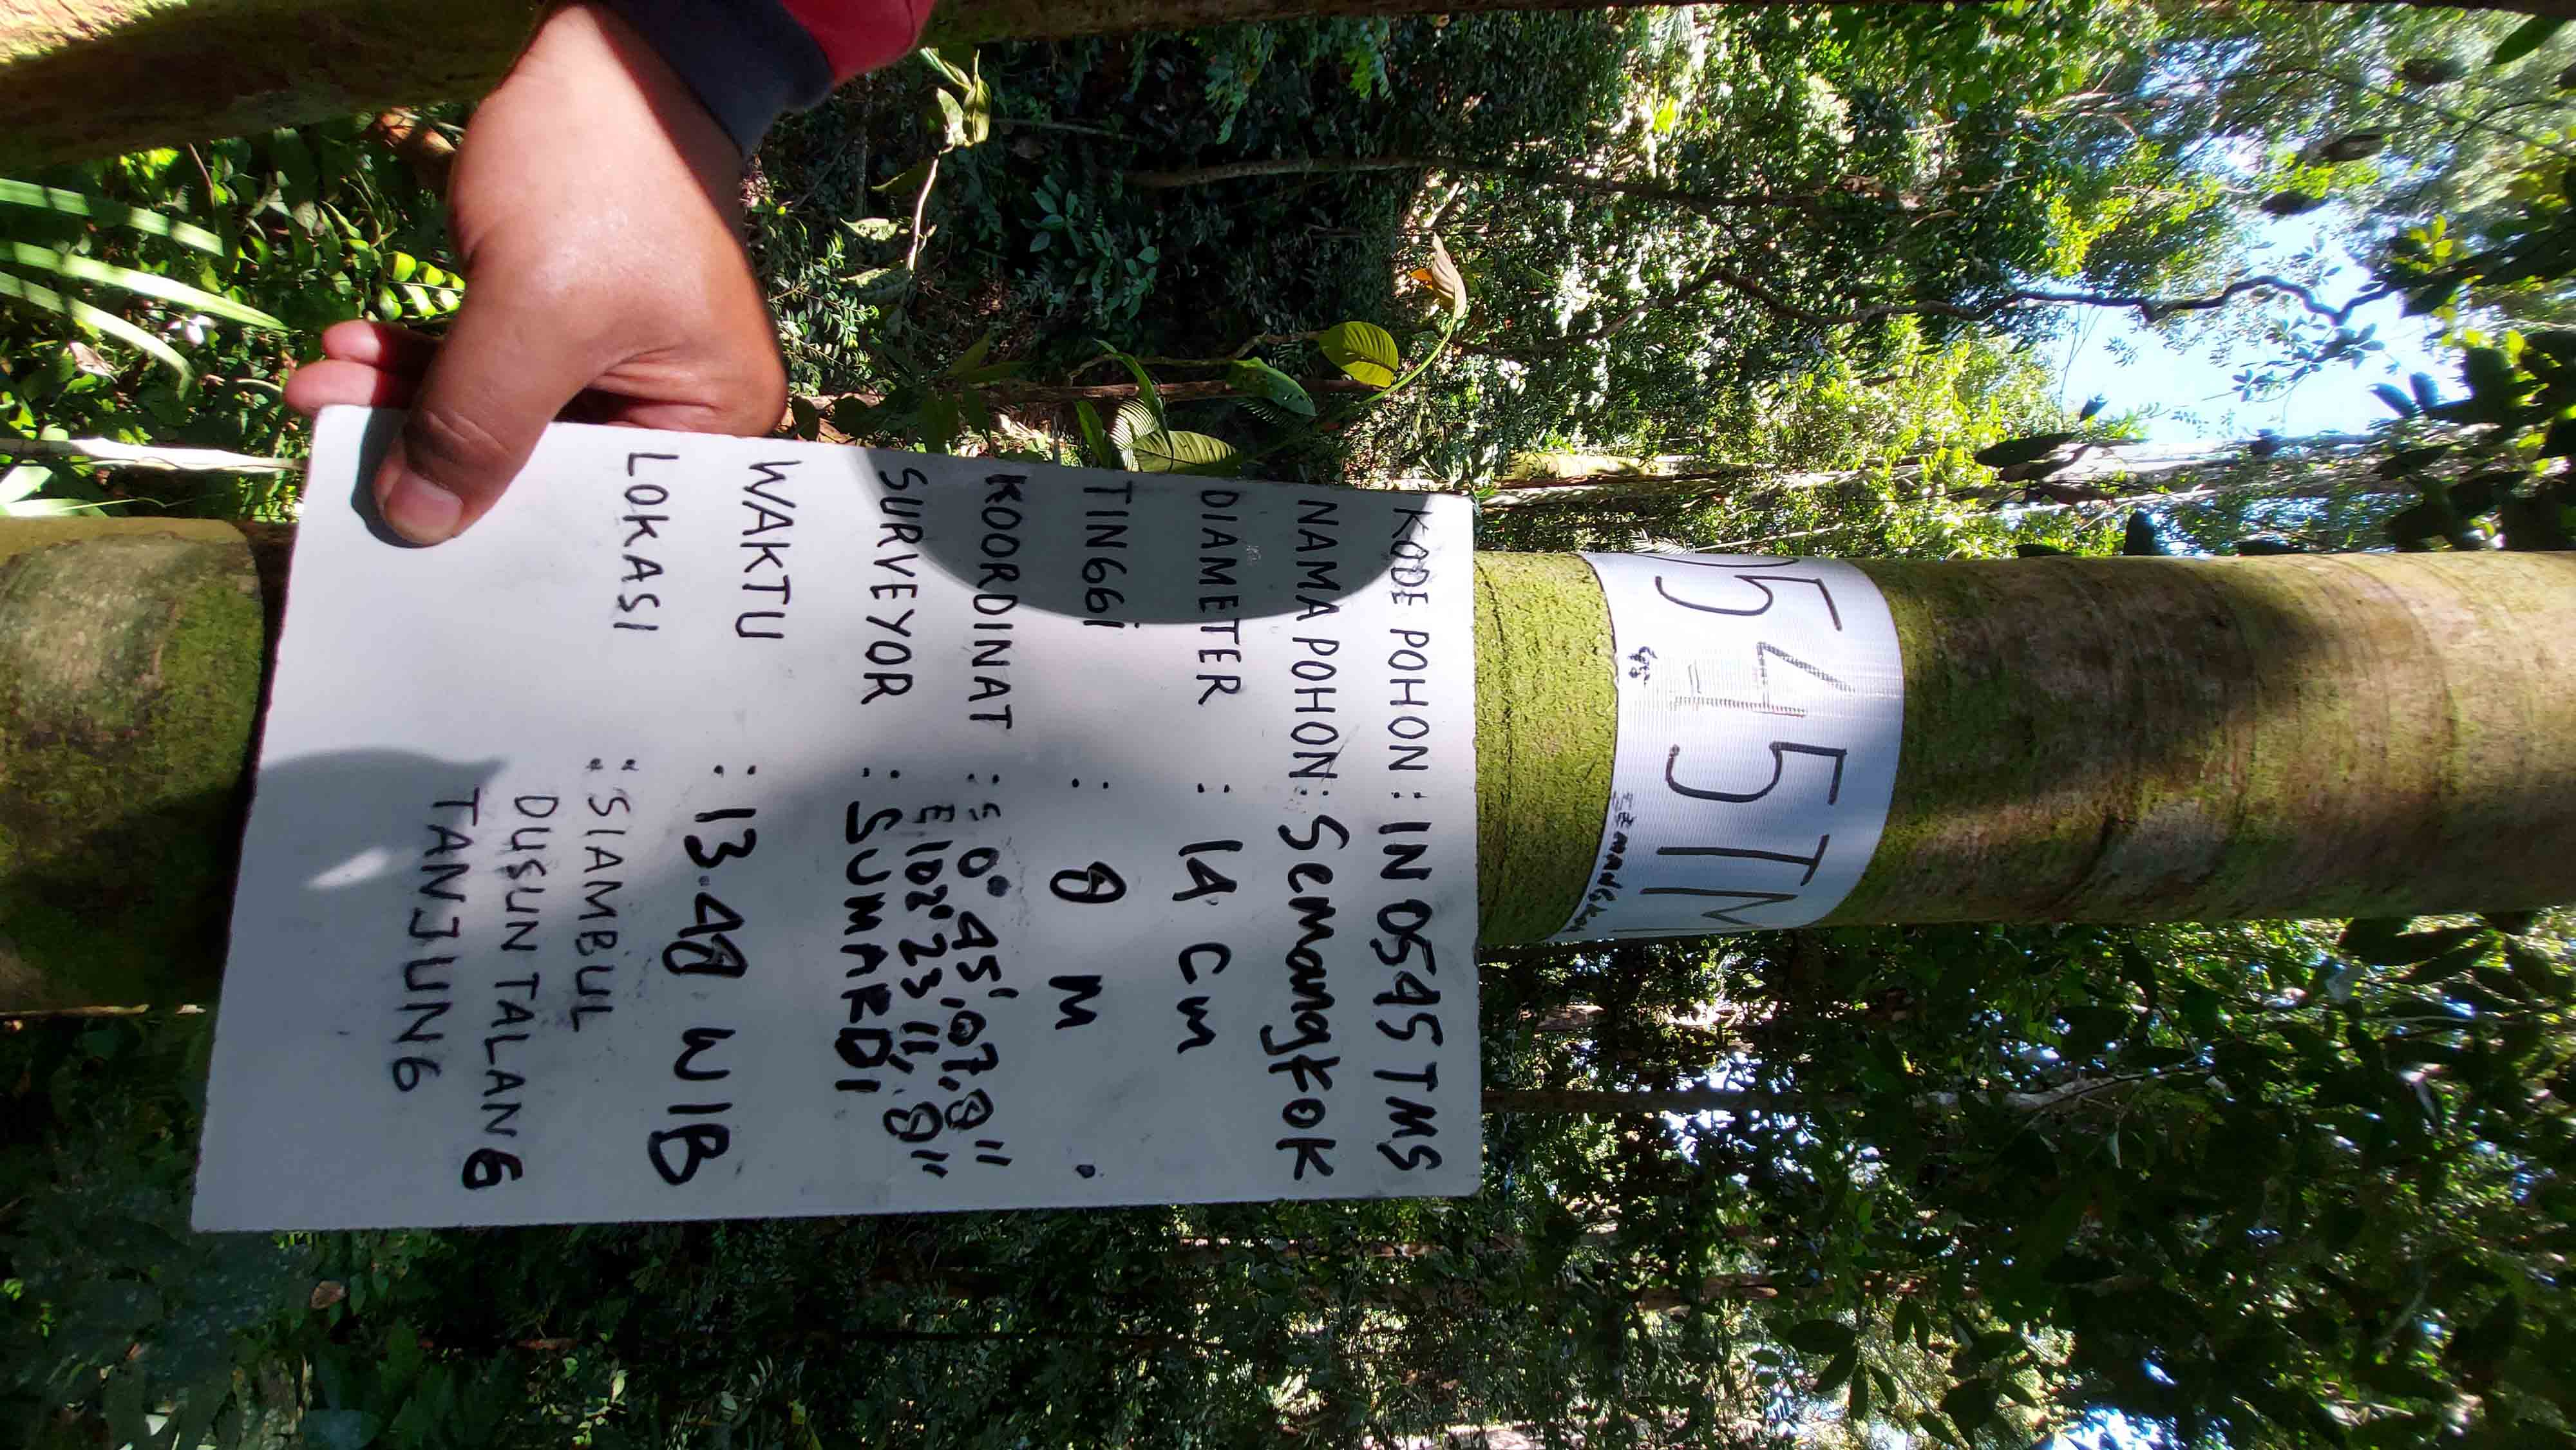 0545TM
SEMANGKOK
KODE POHON : IN 0545 TMS
NAMA POHON : SEMANGKOK
DIAMETER : 14 CM
TINGGI : 8 M
KOORDINAT : S 0° 45' 07,8"
E 102° 23' 11,8"
SURVEYOR : SUMARDI
WAKTU : 13.48 WIB
LOKASI : SIAMBUL
: DUSUN TALANG
TANJUNG